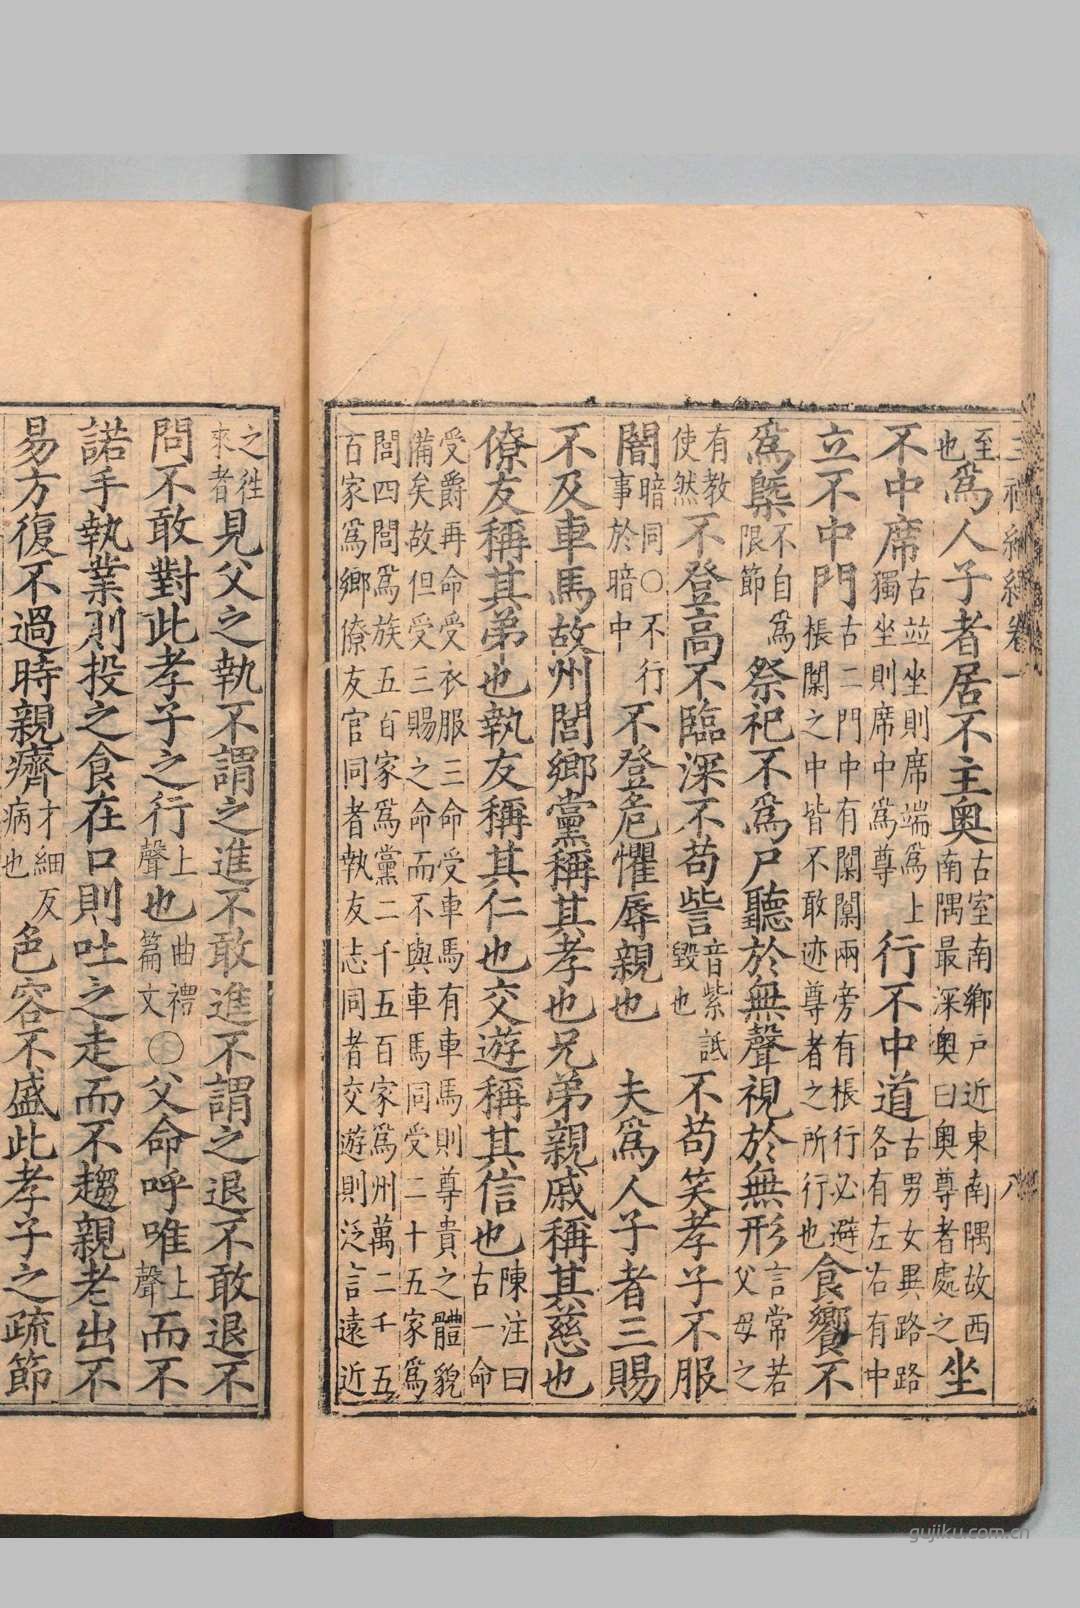 三禮編繹卷一 八
至也為人子者居不主奧古室南鄉戶近東南隅故西南隅最深奧曰奧尊者處之坐
不中席古並坐則席端為上獨坐則席中為尊行不中道古男女異路路各有左右有中
立不中門古二門中有闑闑兩旁有棖行必避棖闑之中皆不敢迹尊者之所行也食饗不
為槩不自為限節祭祀不為尸聽於無聲視於無形言常若父母之
有教使然不登高不臨深不苟訾音紫詆毀也不苟笑孝子不服
闇暗同○不行事於暗中不登危懼辱親也 夫為人子者三賜
不及車馬故州閭鄉黨稱其孝也兄弟親戚稱其慈也
僚友稱其弟也執友稱其仁也交遊稱其信也陳注曰古一命
受爵再命受衣服三命受車馬有車馬則尊貴之體貌
備矣故但受三賜之命而不與車馬同受二十五家為
閭四閭為族五百家為黨二千五百家為州萬二千五
百家為鄉僚友官同者執友志同者交遊則泛言遠近
之往來者見父之執不謂之進不敢進不謂之退不敢退不
問不敢對此孝子之行上聲也曲禮篇文○父命呼唯上聲而不
諾手執業則投之食在口則吐之走而不趨親老出不
易方復不過時親癠才細反病也色容不盛此孝子之疏節
gujiku.com.cn